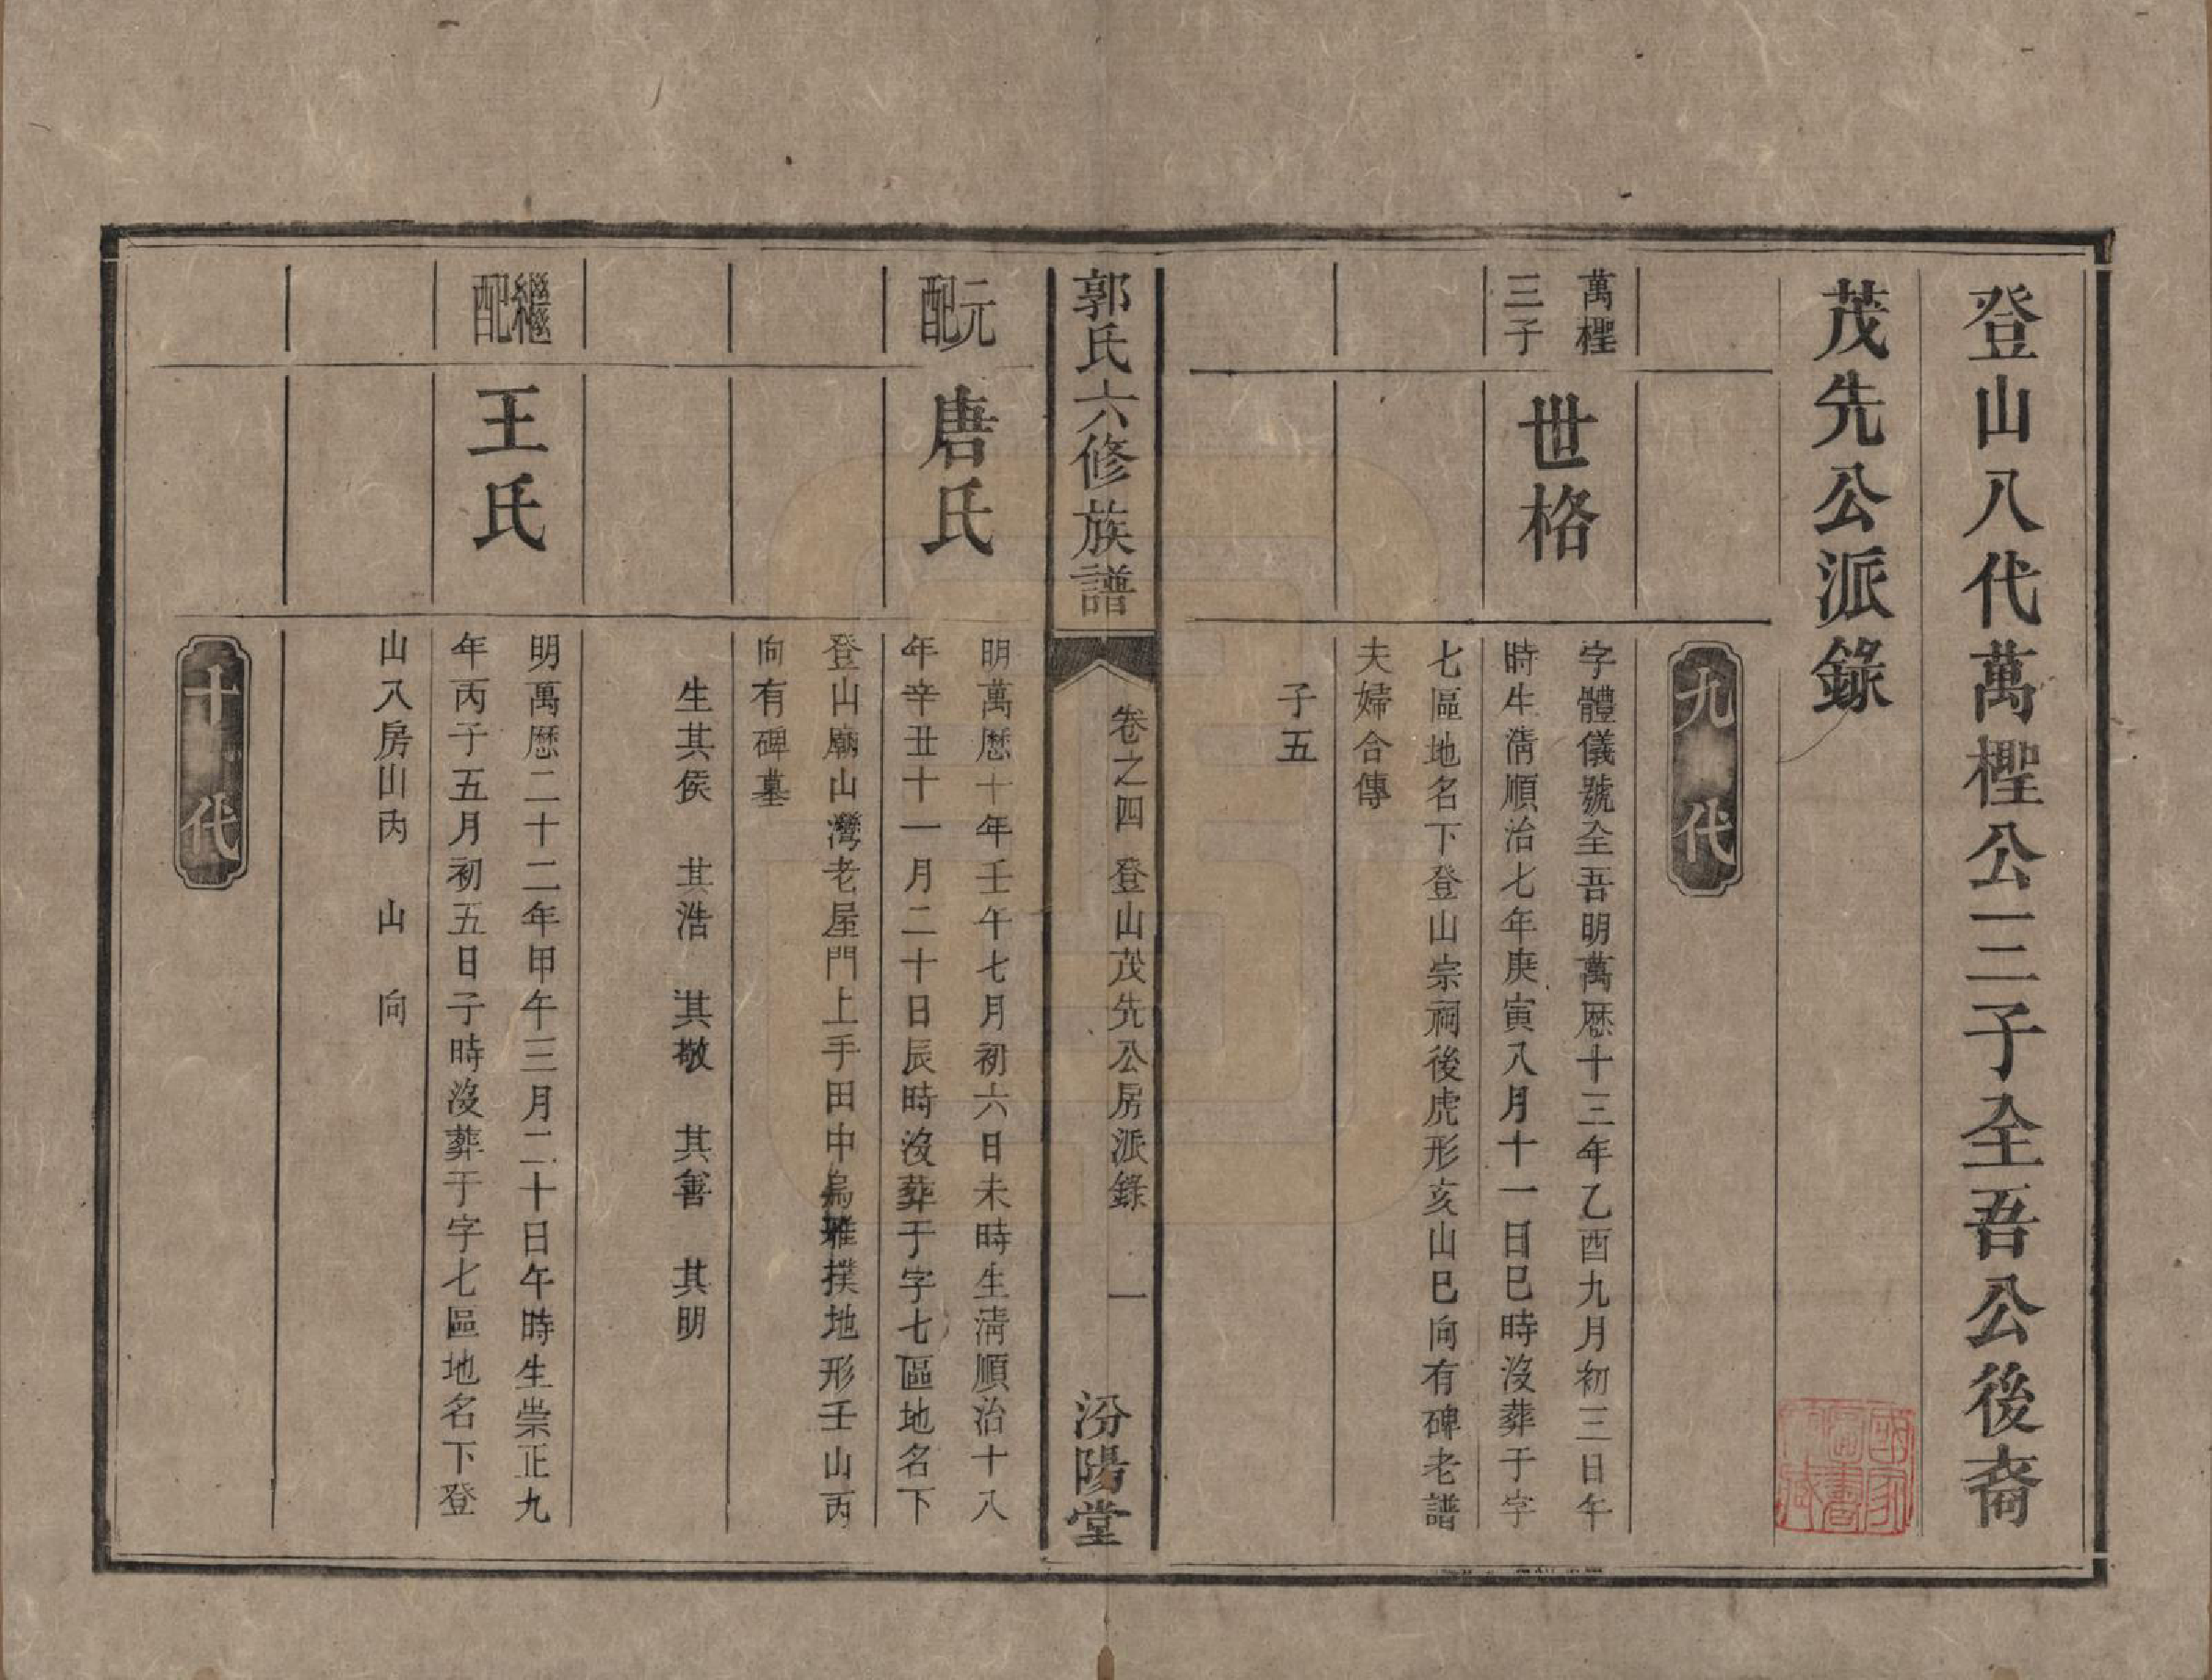 登山八代萬檉公三子全吾公後裔
茂先公派錄
九代
萬檉
三子
世格
字體儀號全吾明萬歷十三年乙酉九月初三日午
時生淸順治七年庚寅八月十一日巳時沒葬于字
七區地名下登山宗祠後虎形亥山巳向有碑老譜
夫婦合傳
子五
郭氏六修族譜
卷之四 登山茂先公房派錄 一
汾陽堂
元
配
唐氏
明萬歷十年壬午七月初六日未時生淸順治十八
年辛丑十一月二十日辰時沒葬于字七區地名下
登山廟山灣老屋門上手田中烏雅撲地形壬山丙
向有碑墓
生其侯 其浩 其敬 其善 其明
繼
配
王氏
明萬歷二十二年甲午三月二十日午時生崇正九
年丙子五月初五日子時沒葬于字七區地名下登
山入房山內 山 向
十代